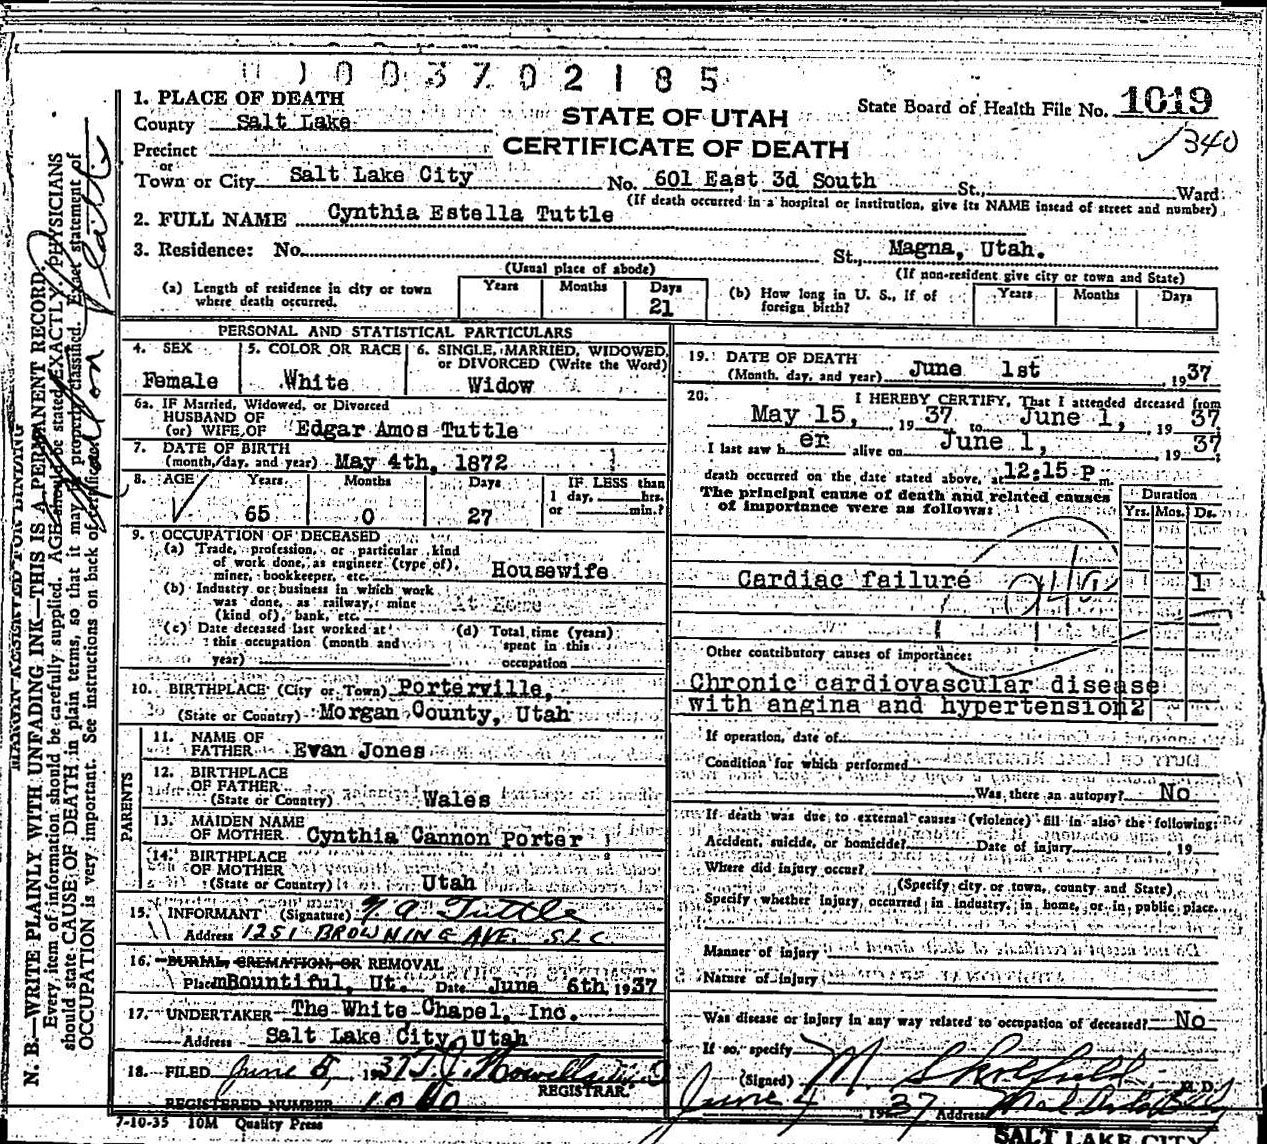 003702185
1. PLACE OF DEATH
County Salt Lake
Precinct
or
Town or City Salt Lake City No. 601 East 3d South St., Ward
(If death occurred in a hospital or institution, give its NAME instead of street and number)
STATE OF UTAH
CERTIFICATE OF DEATH
State Board of Health File No. 1019
1340
2. FULL NAME Cynthia Estella Tuttle
3. Residence: No. St., Magna, Utah.
(Usual place of abode) (If non-resident give city or town and State)
(a) Length of residence in city or town where death occurred. Years Months Days 21
(b) How long in U. S., if of foreign birth? Years Months Days
PERSONAL AND STATISTICAL PARTICULARS
4. SEX Female
5. COLOR OR RACE White
6. SINGLE, MARRIED, WIDOWED, or DIVORCED (Write the Word) Widow
6a. IF Married, Widowed, or Divorced
HUSBAND OF
(or) WIFE OF Edgar Amos Tuttle
7. DATE OF BIRTH
(month, day, and year) May 4th, 1872
8. AGE Years Months Days IF LESS than
1 day, hrs.
or min.?
65 0 27
9. OCCUPATION OF DECEASED
(a) Trade, profession, or particular kind
of work done, as engineer (type of),
miner, bookkeeper, etc. Housewife
(b) Industry or business in which work
was done, as railway, mine
(kind of), bank, etc. At Home
(c) Date deceased last worked at
this occupation (month and
year)
(d) Total time (years)
spent in this
occupation
10. BIRTHPLACE (City or Town) Porterville,
(State or Country) Morgan County, Utah
PARENTS
11. NAME OF
FATHER Evan Jones
12. BIRTHPLACE
OF FATHER
(State or Country) Wales
13. MAIDEN NAME
OF MOTHER Cynthia Cannon Porter
14. BIRTHPLACE
OF MOTHER
(State or Country) Utah
15. INFORMANT (Signature) Tuttle
Address 1251 BROWNING AVE. S.L.C
16. BURIAL CREMATION OR REMOVAL
Place Bountiful, Ut. Date June 6th, 1937
17. UNDERTAKER The White Chapel, Inc.
Address Salt Lake City, Utah
18. FILED June 5, 1937
REGISTRAR.
REGISTERED NUMBER
7-10-35 10M Quality Press
19. DATE OF DEATH
(Month, day, and year) June 1st, 1937
20. I HEREBY CERTIFY, That I attended deceased from
May 15, 1937 to June 1, 1937
I last saw her alive on June 1, 1937;
death occurred on the date stated above, at 12:15 P m.
The principal cause of death and related causes
of importance were as follows:
Duration
Yrs. Mos. Ds.
Cardiac failure 1
94a
Other contributory causes of importance:
Chronic cardiovascular disease
with angina and hypertension 2
If operation, date of
Condition for which performed
Was there an autopsy? No
If death was due to external causes (violence) fill in also the following:
Accident, suicide, or homicide? Date of injury , 19
Where did injury occur?
(Specify city or town, county and State)
Specify whether injury occurred in industry, in home, or in public place.
Manner of injury
Nature of injury
Was disease or injury in any way related to occupation of deceased? No
If so, specify
(Signed) M. D.
June 4, 1937 Address
SALT LAKE CITY
MARGIN RESERVED FOR BINDING
N. B.—WRITE PLAINLY WITH UNFADING INK—THIS IS A PERMANENT RECORD.
Every item of information should be carefully supplied. AGE should be stated EXACTLY. PHYSICIANS
should state CAUSE OF DEATH in plain terms, so that it may be properly classified. Exact statement of
OCCUPATION is very important. See instructions on back of certificate.